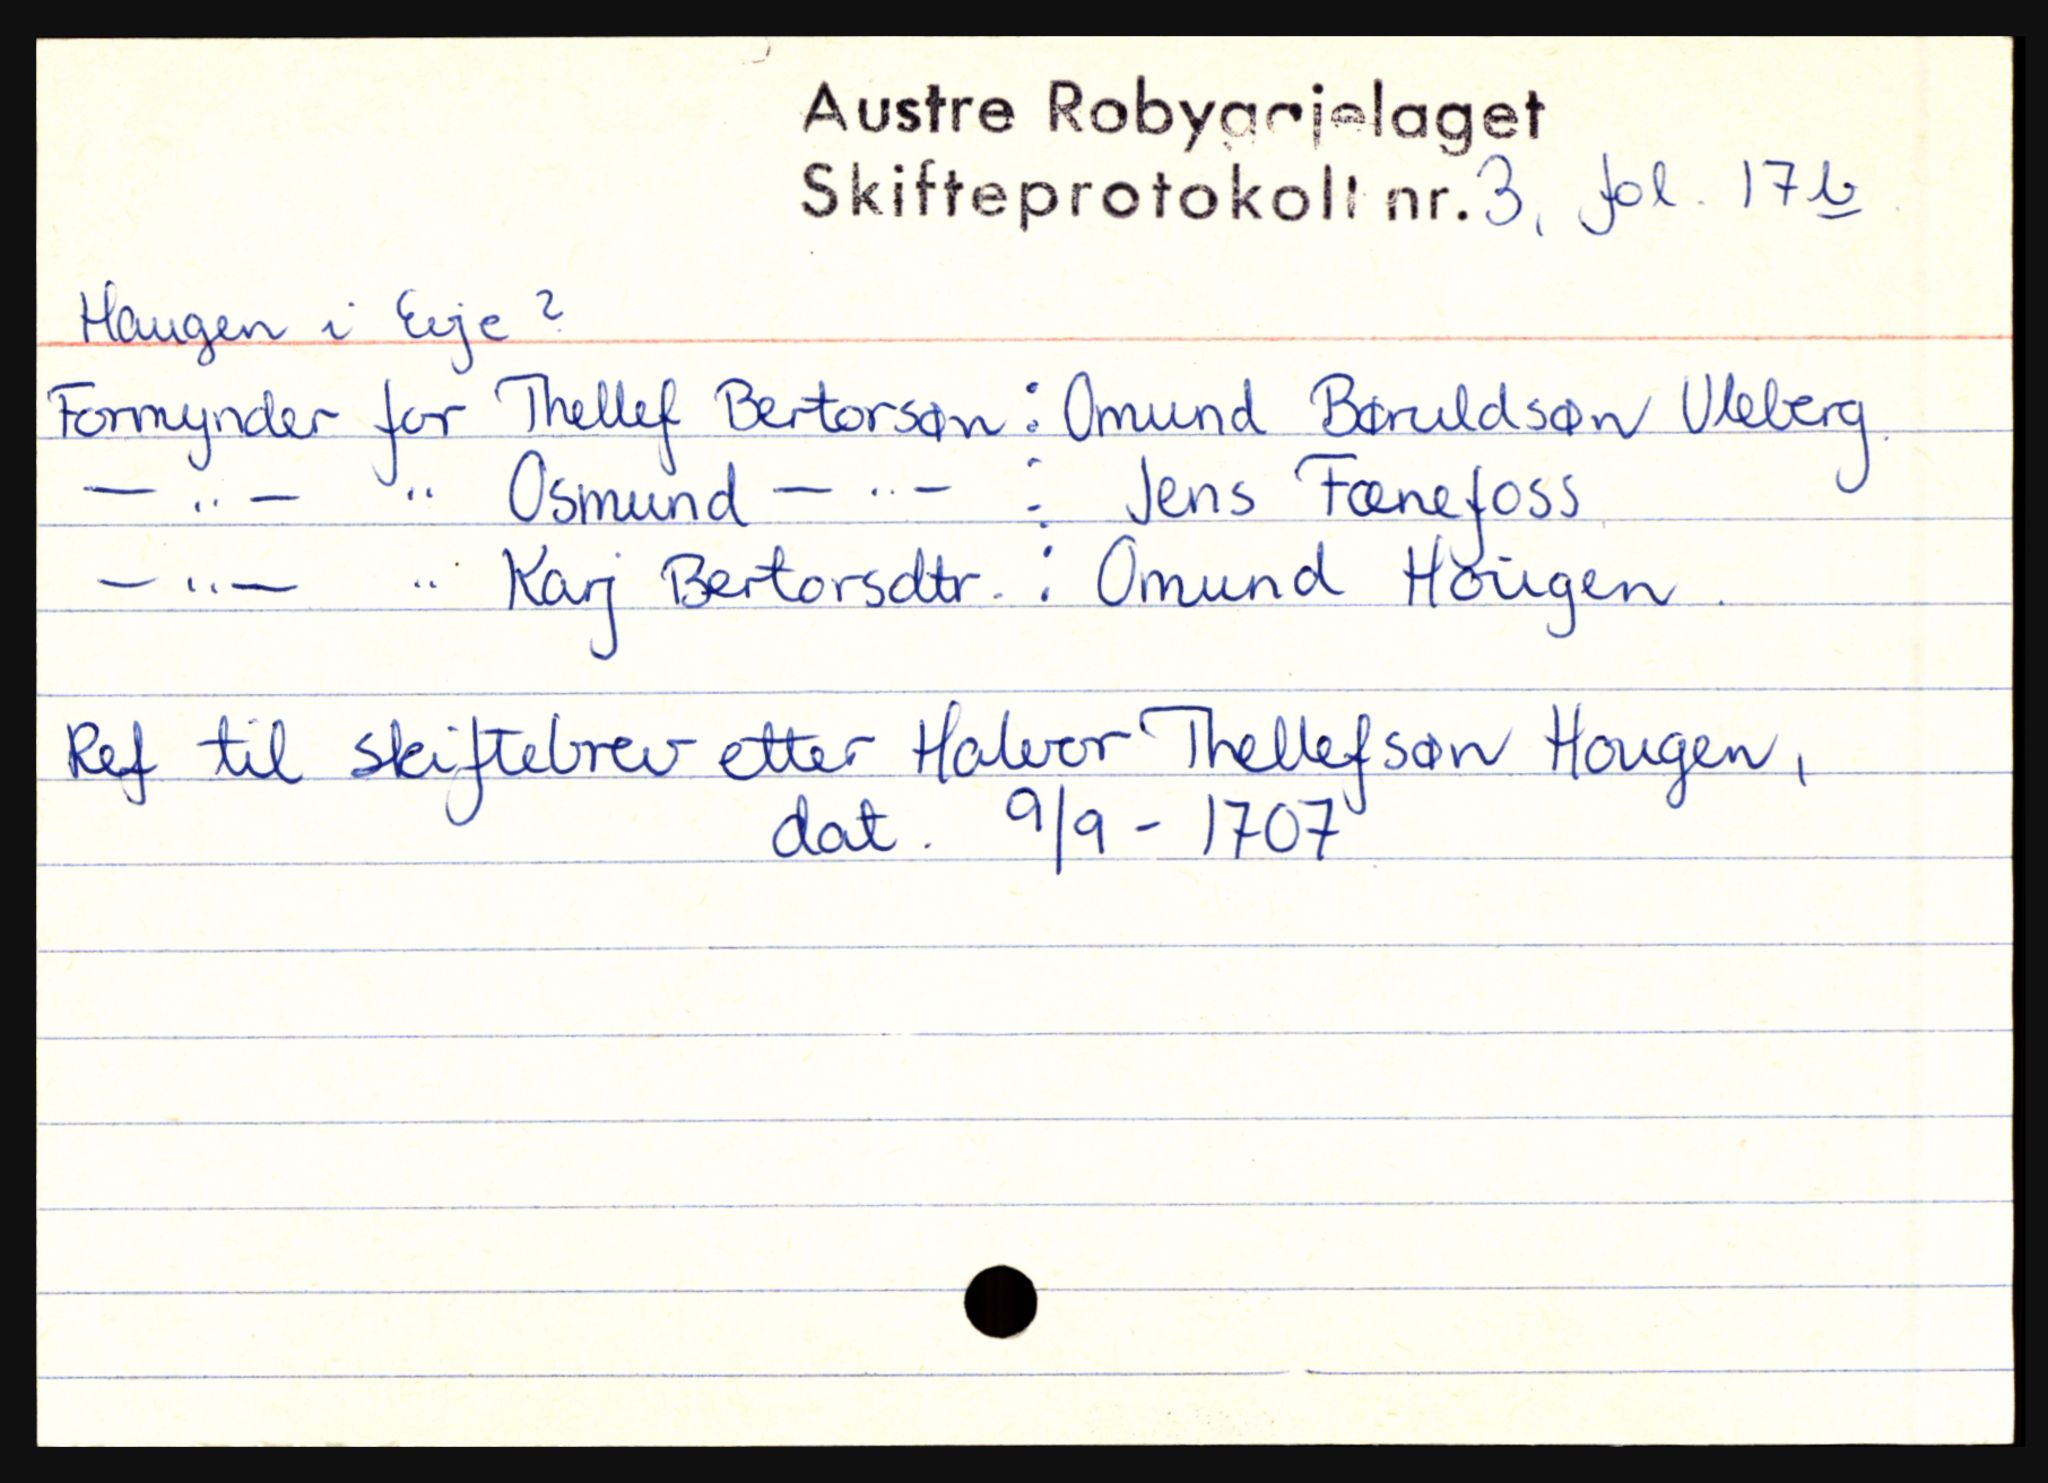 Austre Robygdjelaget
Skifteprotokoll nr. 3, fol. 17b
Haugen i Evje?
Formynder for Thellef Bertorsøn : Omund Børuldsøn Uleberg.
— " — " Osmund — " — : Jens Fænefoss
— " — " Karj Bertorsdtr. : Omund Hoŭgen.
Ref til skiftebrev etter Halvor Thellefsøn Hougen,
dat. 9/9 - 1707